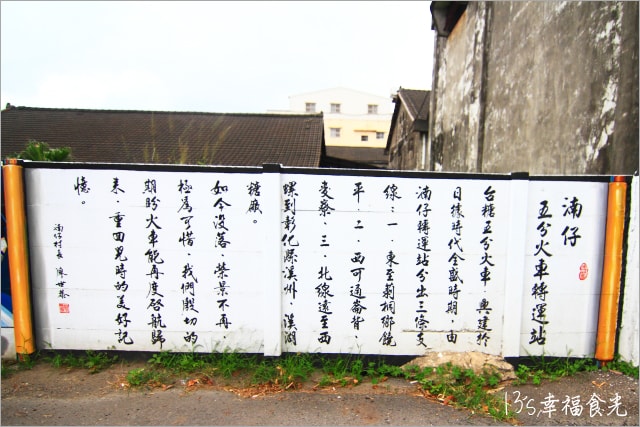 湳仔
五分火車轉運站
台糖五分火車,興建於
日據時代全盛時期,由
湳仔轉運站分出三條支
線:一.東至莿桐鄉饒
平.二.西可通崙背、
麥寮.三.北線遠至西
螺到彰化縣溪州、溪湖
糖廠。
如今沒落,榮景不再,
極為可惜,我們殷切的
期盼火車能再度啓航歸
來,重回兒時的美好記
憶。
湳仔村長 廖世
13's幸福食光